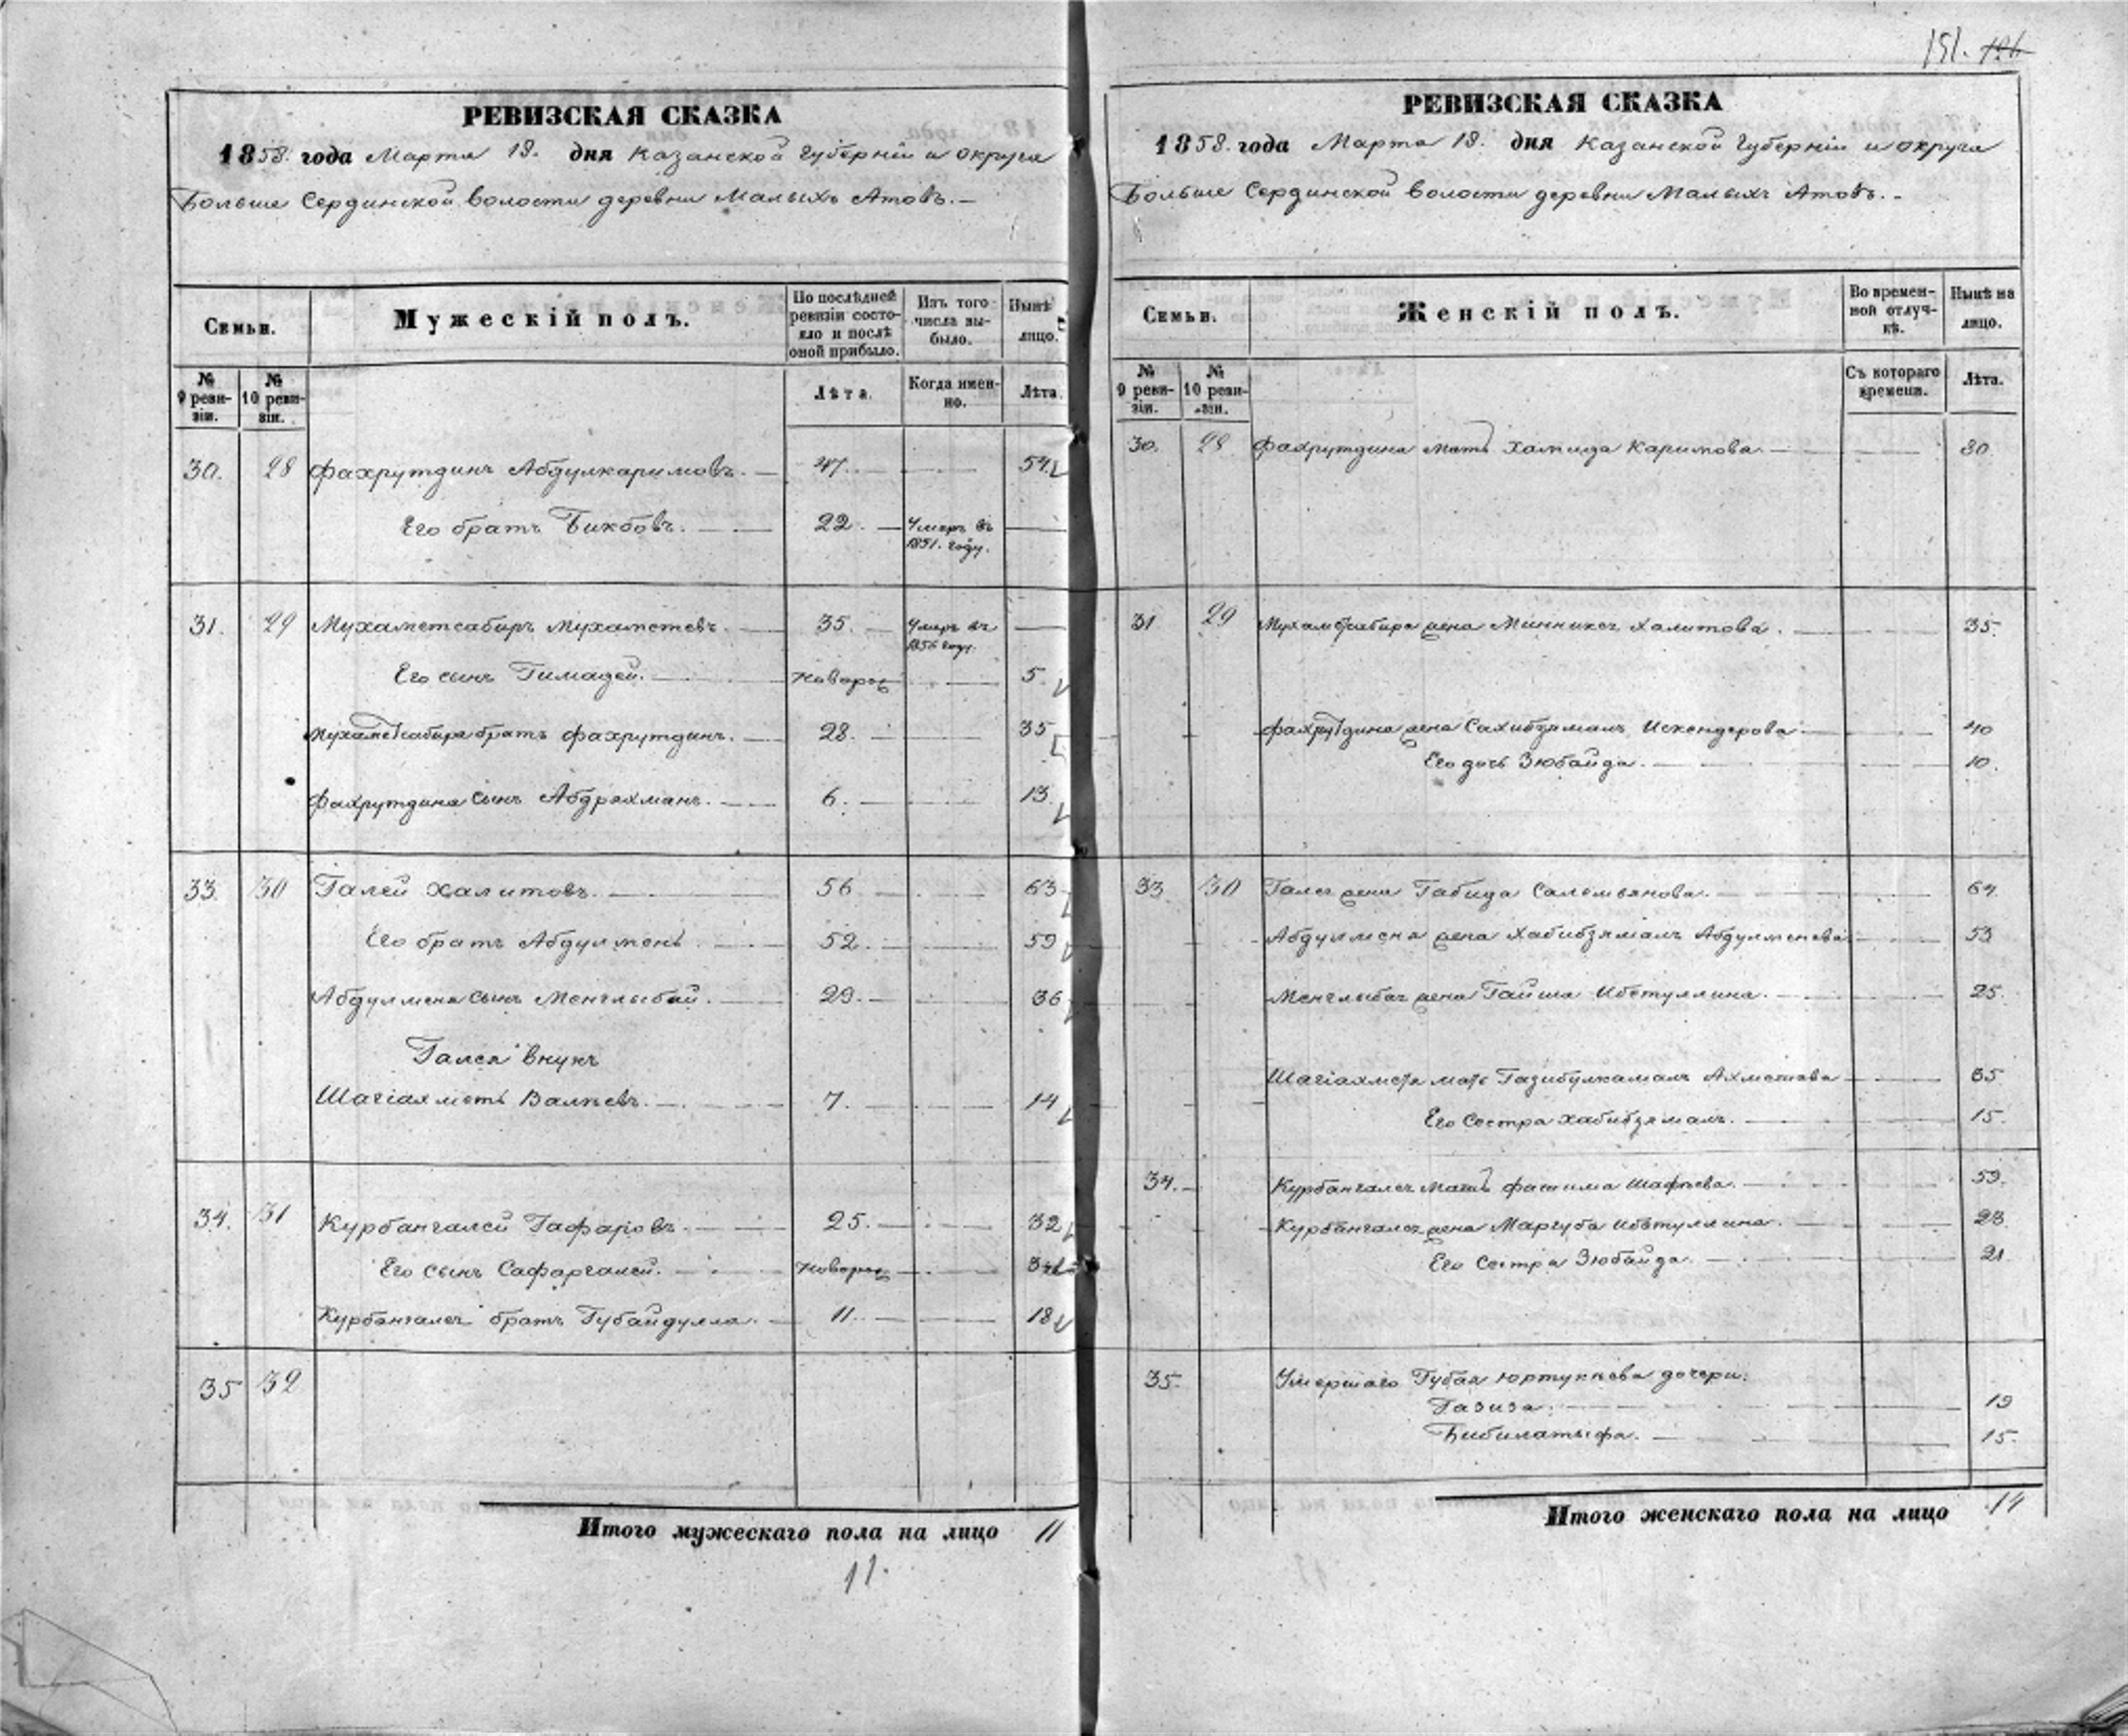 РЕВИЗСКАЯ СКАЗКА
1858. года Марта 18. дня Казанской Губернiи и округа
Больше Сердинской волости деревни Малыхъ Атовъ. –
Семьи.
Мужескiй полъ.
По послѣдней ревизiи состояло и послѣ оной прибыло.
Изъ того числа выбыло.
Нынѣ лицо.
№ 9 ревизiи.
№ 10 ревизiи.
Лѣта.
Когда именно.
Лѣта.
30. 28 Фахрутдинъ Абдулкаримовъ. 47. 54.
Его братъ Бикбовъ. 22. Умеръ въ 1851. году.
31. 29 Мухаметсабиръ Мухаметевъ. 35. Умеръ въ 1856 году.
Его сынъ Гимадей. новорож 5.
Мухаметсабира братъ Фахрутдинъ. 28. 35
Фахрутдина сынъ Абдряхманъ. 6. 13.
33. 30 Галей Халитовъ. 56 63
Его братъ Абдулменъ 52. 59
Абдулмена сынъ Менглыбай. 29. 36
Галея внукъ
Шагiахметъ Валѣевъ. 7. 14
34. 31 Курбангалей Гафаровъ 25. 32
Его сынъ Сафаргалей. новорож
Курбангалея братъ Губайдулла. 11. 18
35 32
Итого мужескаго пола на лицо 11
11.
151. 126
РЕВИЗСКАЯ СКАЗКА
1858. года Марта 18. дня Казанской Губернiи и округа
Больше Сердинской волости деревни Малыхъ Атовъ. -
Семьи.
Женскiй полъ.
Во временной отлучкѣ.
Нынѣ на лицо.
№ 9 ревизiи.
№ 10 ревизiи.
Съ котораго времени.
Лѣта.
30. 28 Фахрутдина мать Хамида Каримова. 80.
31 29 Мухаметсабира жена Халитова. 35.
Фахрутдина жена Сахибзямалъ Искендерова 40
Его дочь Зюбайда. 10.
33 30 Галея жена Габида 64.
Абдулмена жена Хабибзямалъ Абдулменева 53
Менглыбая жена Гайша Ибетуллина. 25.
Шагiахмета мать Ахметова 35
Его сестра Хабибзямалъ. 15.
34. Курбангалея мать Фатима Шафѣева. 59.
Курбангалея жена Маргуба Ибетуллина. 23.
Его сестра Зюбайда. 21
35. Умершаго Губая дочери:
Газиза. 19
Бибилатыфа. 15.
Итого женскаго пола на лицо 14